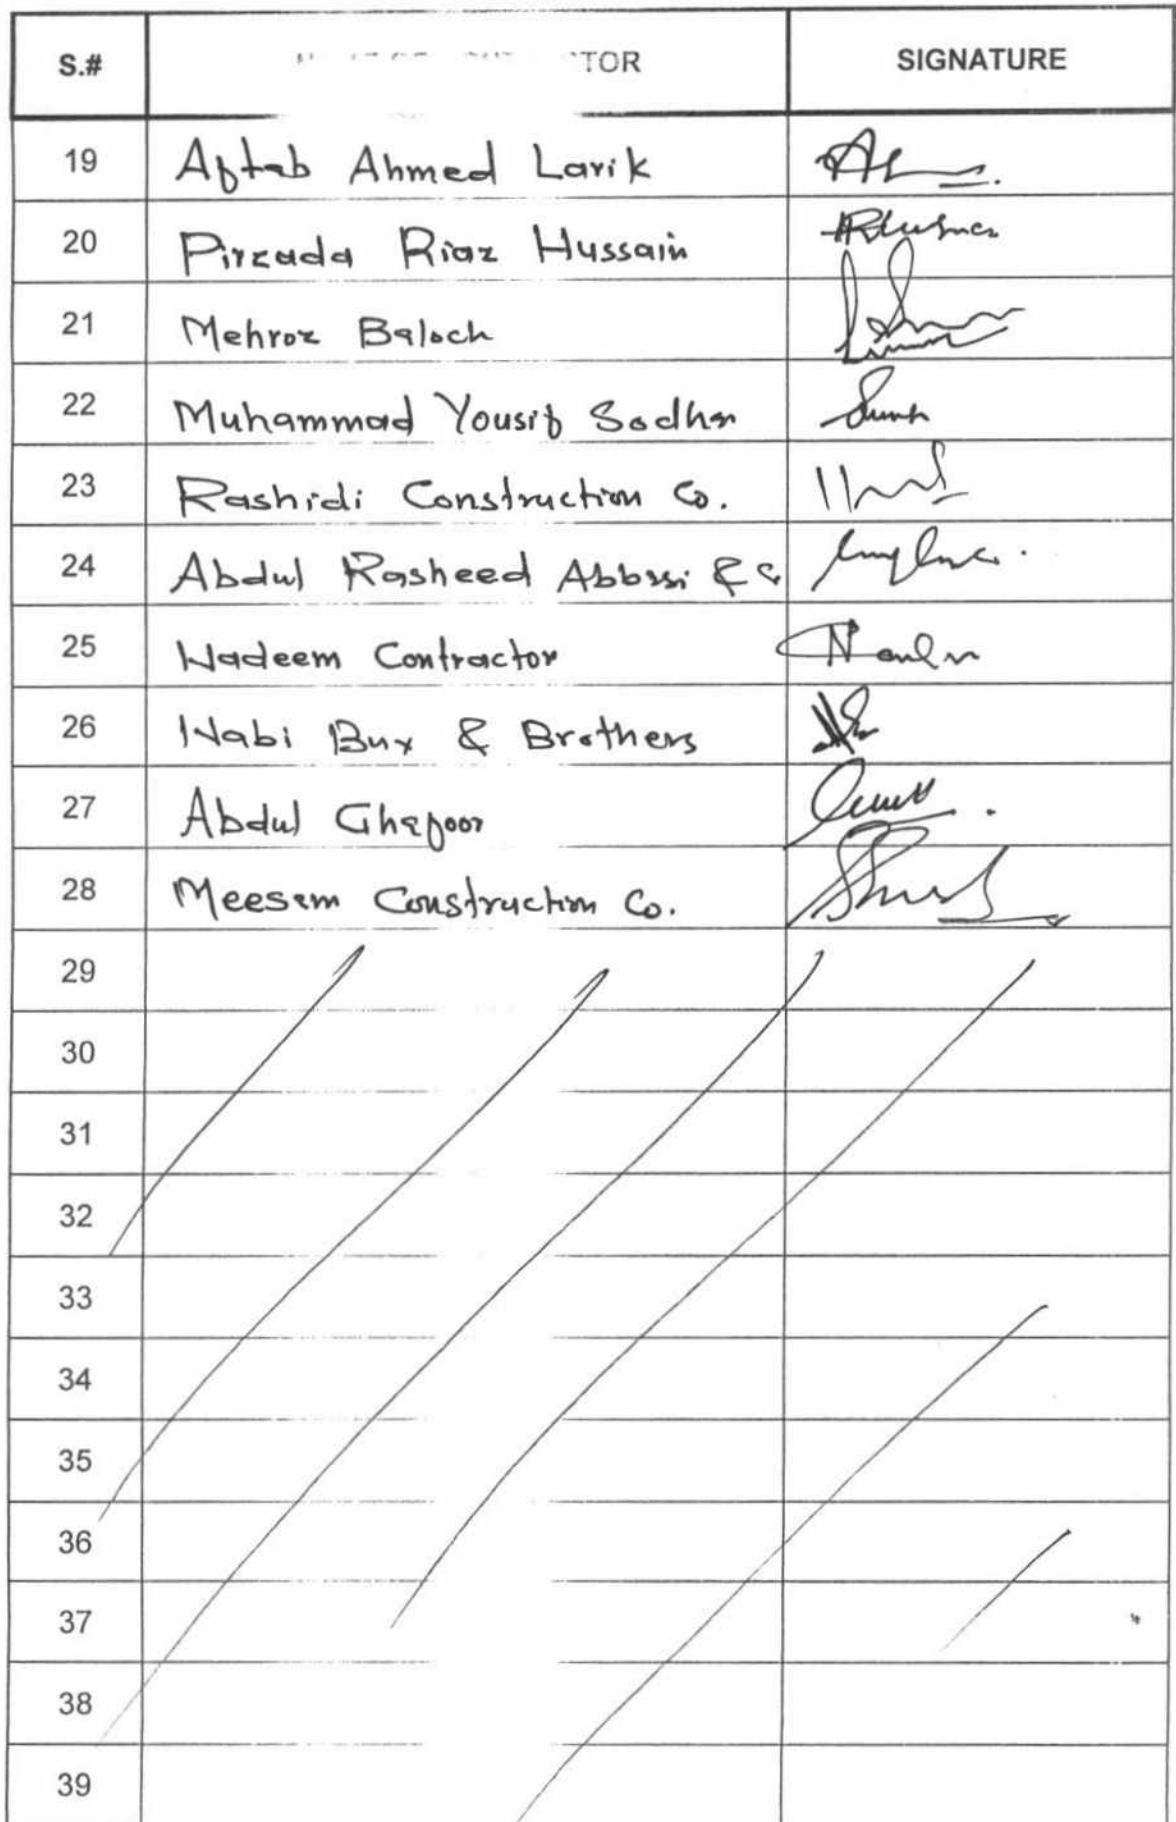 S.# TOR SIGNATURE
19 Aftab Ahmed Larik
20 Pirzada Riaz Hussain
21 Mehroz Baloch
22 Muhammad Yousif Sodhar
23 Rashidi Construction Co.
24 Abdul Rasheed Abbasi & Co
25 Nadeem Contractor
26 Nabi Bux & Brothers
27 Abdul Ghafoor
28 Meesam Construction Co.
29
30
31
32
33
34
35
36
37
38
39